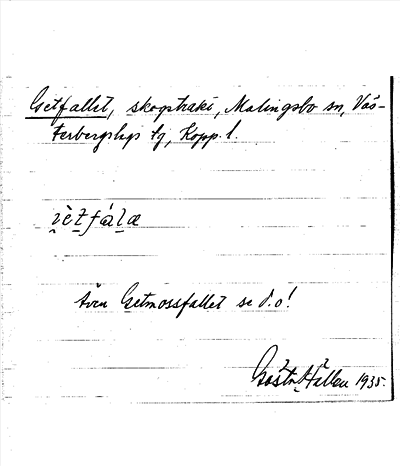 Getfallet, skogstrakt, Malingsbo sn, Väs-
terbergslags tg, Kopp. l.
även Getmossfallet se d.o!
Gösta Hallén 1935.